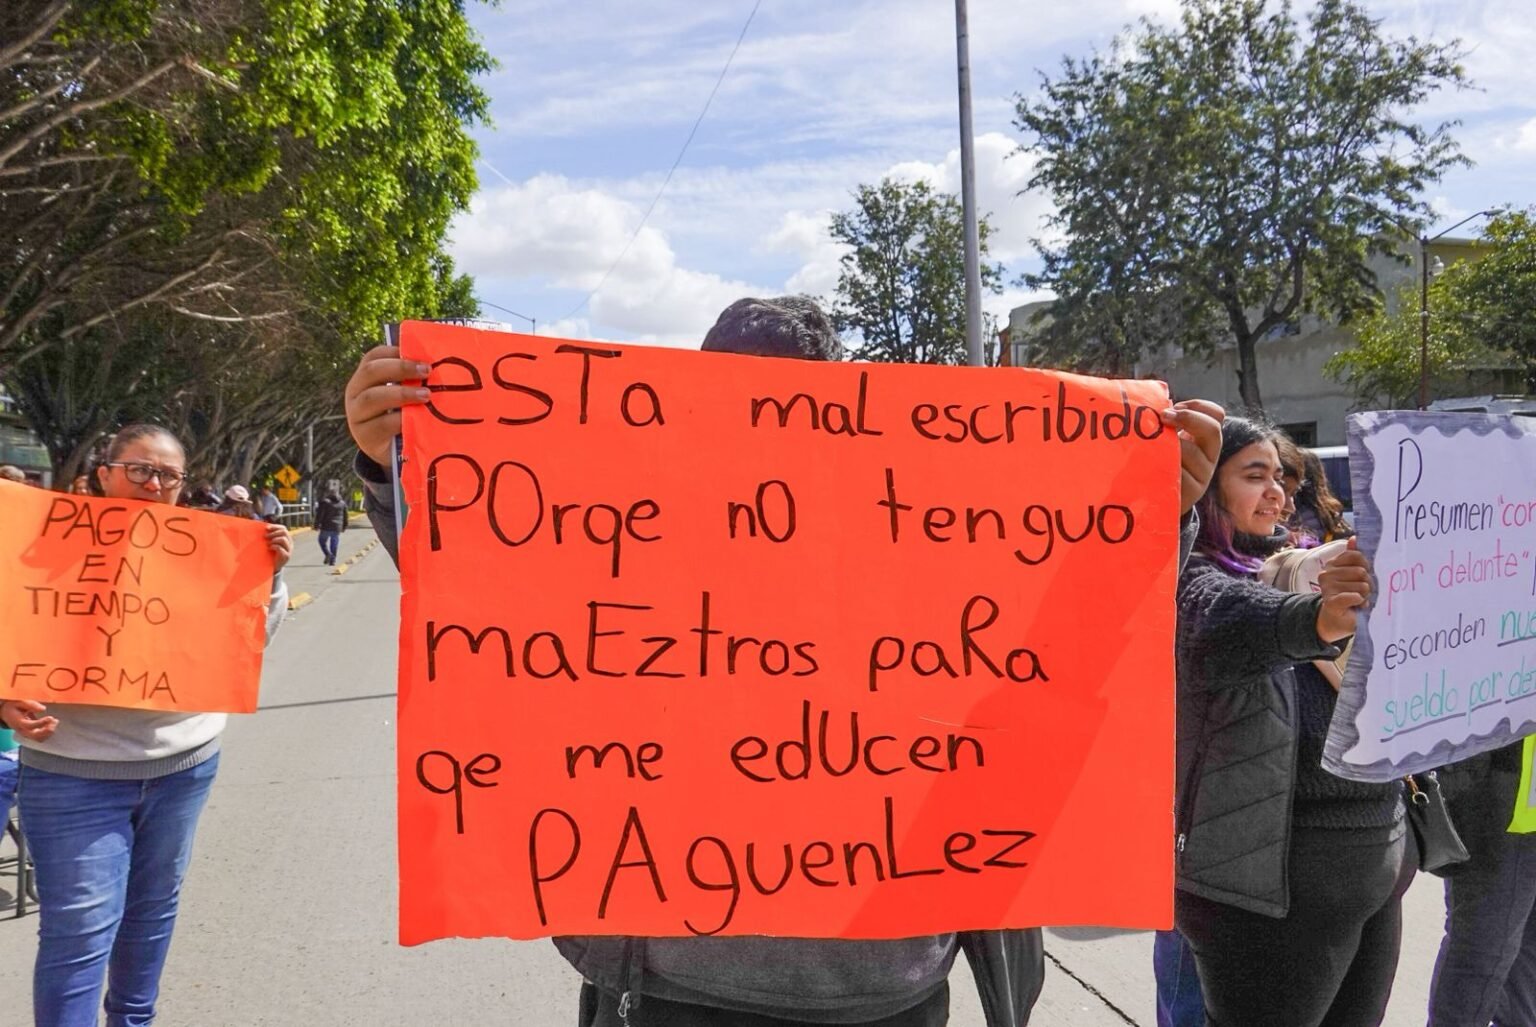 PAGOS
EN
TIEMPO
Y
FORMA
esTa maL escribido
POrqe nO tenguo
maEztros paRa
qe me edUcen
PAguenLez
Presumen "cor
por delante"
esconden nue
sueldo por de